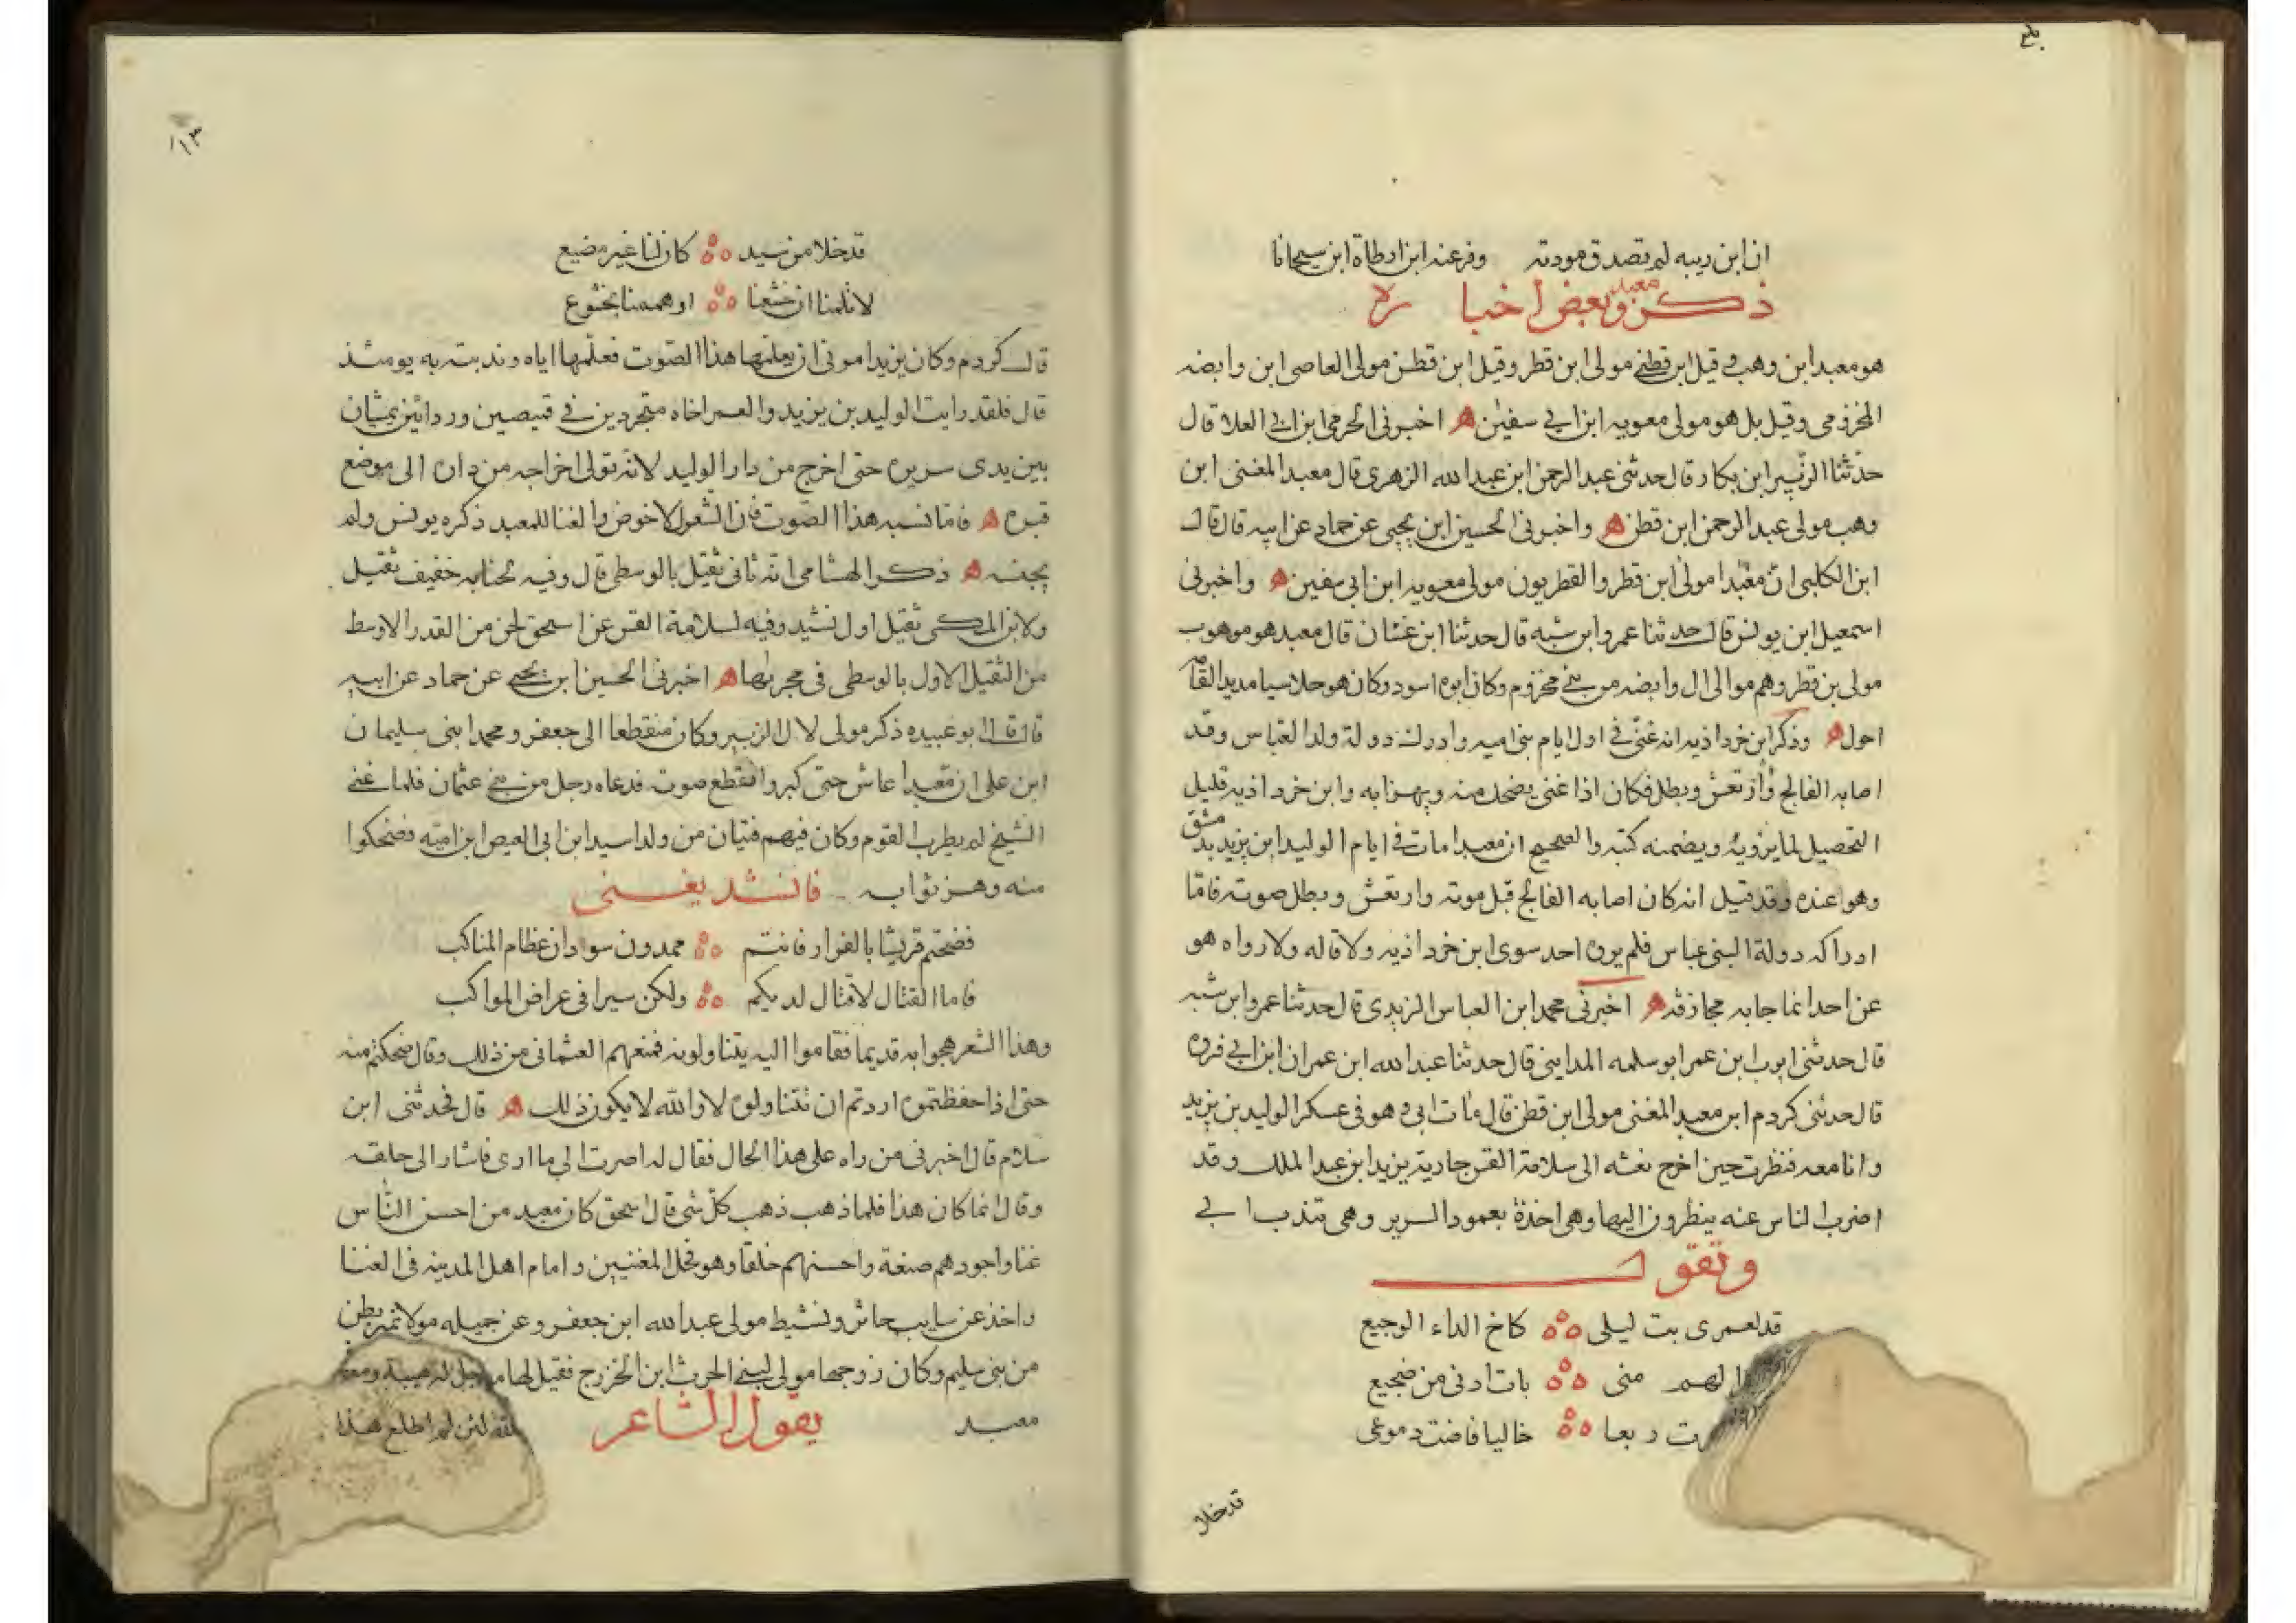 ان ابن ربيه لم تصدق مودته وفر عنه ابن ارطاة ابن سيحانا
ذكر معبد وبعض اخباره
هو معبد ابن وهب وقيل ابن قطني مولى ابن قطر وقيل ابن قطن مولى العاصى ابن وابضه
المخزومى وقيل بل هو مولى معويه ابن ابي سفين ه اخبرنى الحرمى ابن ابي العلا قال
حدثنا الزبير ابن بكار قال حدثنى عبد الرحمن ابن عبد الله الزهرى قال معبد المغنى ابن
وهب مولى عبد الرحمن ابن قطن ه واخبرنى الحسين ابن يحيى عن حماد عن ابيه قال قال
ابن الكلبى ان معبدا مولى ابن قطر والقطريون مولى معويه ابن ابى سفين ه واخبرنى
اسمعيل ابن يونس قال حدثنا عمرو ابن شبه قال حدثنا ابن غسان قال معبد هو موهوب
مولى بن قطر وهم موالى ال وابضه من بنى مخزوم وكان ابوه اسود وكان هو حلاسيا مديد القامه
احول ه وذكر ابن خرداذبه انه غنى في اول ايام بنى اميه وادرك دولة ولد العباس وقد
اصابه الفالج وارتعش وبطل فكان اذا غنى يضحك منه ويهزا به وابن خرداذبه قليل
التحصيل لما يرويه ويضمنه كتبه والصحيح ان معبدا مات في ايام الوليد ابن يزيد بدمشق
وهو عنده وقد قيل انه كان اصابه الفالج قبل موته وارتعش وبطل صوته فاما
ادراكه دولة البنى عباس فلم يروه احد سوى ابن خرداذبه ولا قاله ولا رواه هو
عن احد انما جا به مجازفه ه اخبرنى محمد ابن العباس اليزيدى قال حدثنا عمرو ابن شبه
قال حدثنى ايوب ابن عمر ابو سلمه المدايني قال حدثنا عبد الله ابن عمران ابن ابي فروه
قال حدثنى كردم ابن معبد المغنى مولى ابن قطن قال مات ابى وهو فى عسكر الوليد بن يزيد
وانا معه فنظرت حين اخرج نعشه الى سلامة القس جارية يزيد ابن عبد الملك وقد
اضرب الناس عنه ينظرون اليها وهى اخذة بعمود السرير وهى تندب ابي
وتقول
قد لعمرى بت ليلى كاخ الداء الوجيع
الهم منى بات ادنى من ضجيع
رت ربعا خاليا فاضت دموعى
قدخلا
١١٣
قد خلا من سيد كان لنا غير مضيع
لا تلمنا ان خشعنا او هممنا بخشوع
قال كردم وكان يزيد امر ابى ان يعلمها هذا الصوت فعلمها اياه وندبته به يومئذ
قال فلقد رايت الوليد بن يزيد والغمر اخاه متجردين في قميصين وردائين يمشان
بين يدى سريره حتى اخرج من دار الوليد لانه تولى اخراجه من داره الى موضع
قبره ه فاما نسبه هذا الصوت فان الشعر للاخوص والغنا للمعبد ذكره يونس ولم
يجنسه ه ذكر الهشامى انه ثانى ثقيل بالوسطى قال وفيه لحنابه خفيف ثقيل
ولابن المكى ثقيل اول نشيد وفيه لسلامة القس عن اسحق لحن من القدر الاوسط
من الثقيل الاول بالوسطى فى مجريها ه اخبرنى الحسين ابن يحيى عن حماد عن ابيه
قال قال ابو عبيده ذكر مولى لال الزبير وكان منقطعا الى جعفر ومحمد ابنى سليمان
ابن على ان معبدا عاش حتى كبر وانقطع صوته فدعاه رجل من بنى عثمان فلما غنى
الشيخ لم يطرب القوم وكان فيهم فتيان من ولد اسيد ابن ابى العيص ابن اميه فضحكوا
منه وهزئوا به فانشد يغنى
فضحتم قريشا بالفرار فانتم ممدون سودان عظام المناكب
فاما القتال لاقتال لديكم ولكن سيرا فى عراض المواكب
وهذا الشعر هجوا به قديما فقاموا اليه يتناولونه فمنعهم العثمانى من ذلك وقال ضحكتم منه
حتى اذا حفظتموه اردتم ان تتناولوه لا والله لا يكون ذلك ه قال فحدثنى ابن
سلام قال اخبرنى من راه على هذا الحال فقال له اصرت الى ما ارى فاشار الى حلقه
وقال انما كان هذا فلما ذهب ذهب كل شى قال اسحق كان معبد من احسن الناس
غنا واجودهم صنعة واحسنهم خلقا وهو فحل المغنيين وامام اهل المدينه فى الغنا
واخذ عن سايب حاثر ونشيط مولى عبد الله ابن جعفر وعن جميله مولاة بهز بطن
من بنى سليم وكان زوجها مولى لبنى الحرث ابن الخزرج فقيل لها
معبد يقول الشاعر لئن لم اطلع هذا